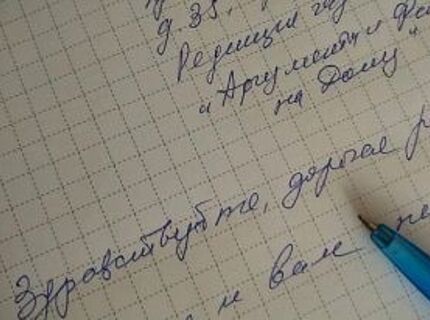 д. 35,
Редакции
"Аргументы и
на Дому"
Здравствуйте, дорогая
и вам